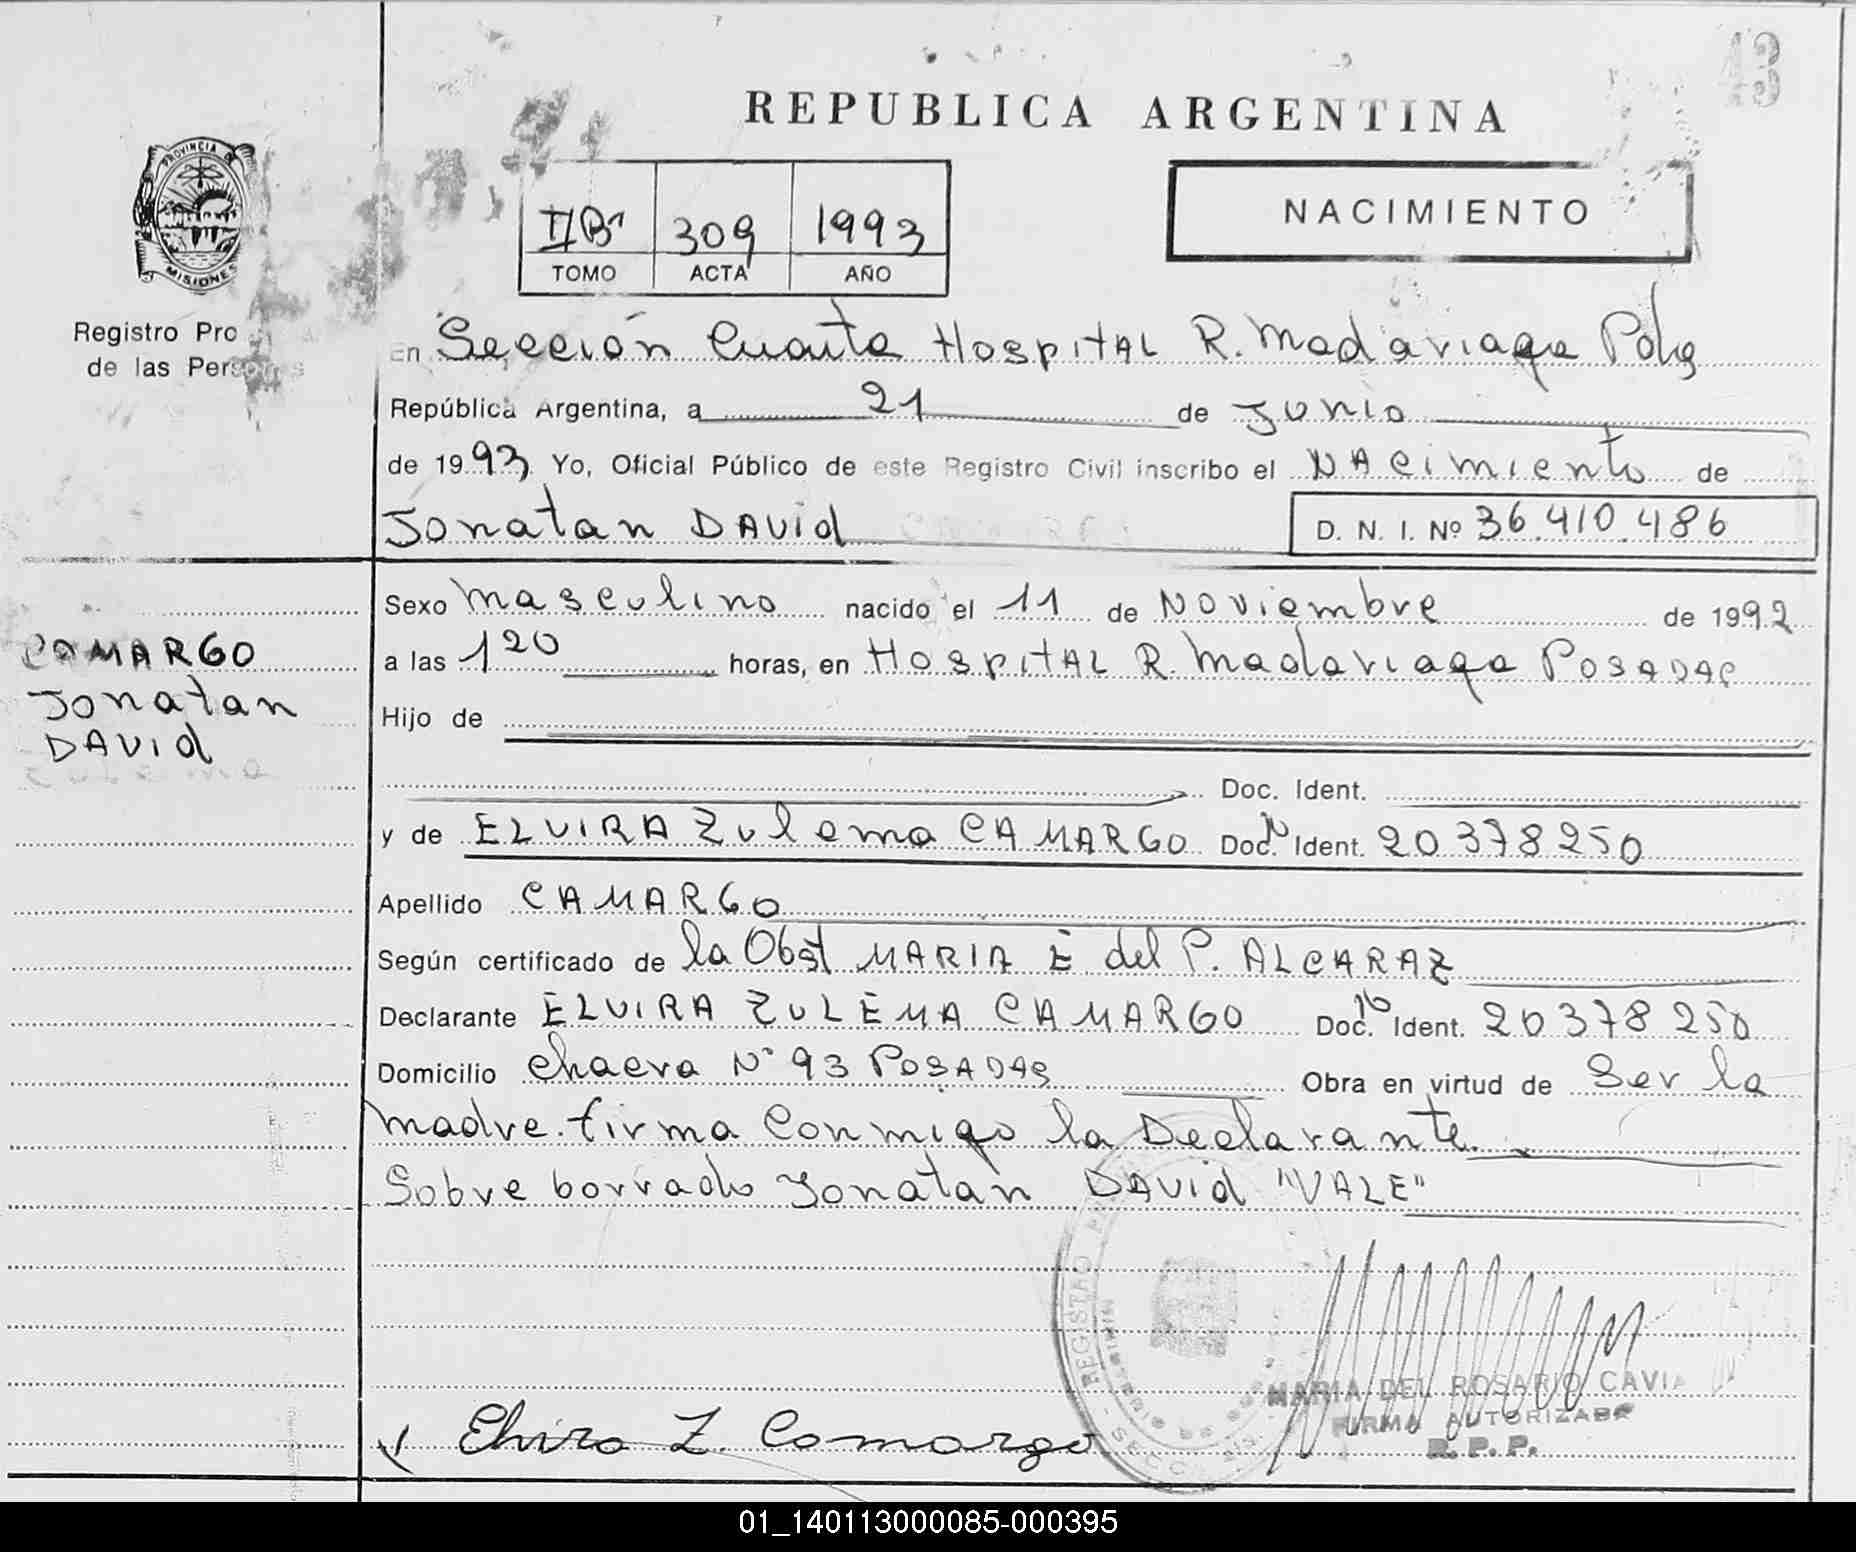 43
REPUBLICA ARGENTINA
PROVINCIA DE
MISIONES
309 1993
TOMO ACTA AÑO
NACIMIENTO
Registro Pro
de las Personas
En Sección Cuarta Hospital R. Madariaga
República Argentina, a 21 de Junio
de 1993 Yo, Oficial Público de este Registro Civil inscribo el NAcimiento de
Jonatan DAVid D. N. I. Nº 36.410.486
Sexo masculino nacido el 11 de Noviembre de 1992
CAMARGO
Jonatan
DAVid
a las 1 20 horas, en HospitAL R. Madariaga POSADAS
Hijo de
Doc. Ident.
y de ELVIRA Zulema CAMARGO Doc. N Ident. 20 378 250
Apellido CAMARGO
Según certificado de la Obst MARIA E del P. ALCARAZ
Declarante ELVIRA ZULEMA CAMARGO Doc. N Ident. 20 378 250
Domicilio chacra N° 93 POSADAS Obra en virtud de Ser la
madre. firma conmigo la Declarante
Sobre borrado Jonatan DAVid "VALE"
REGISTRO
MARIA DEL ROSARIO CAVIA
FIRMA AUTORIZADA
R. P. P.
Elvira Z. Camargo
01_140113000085-000395